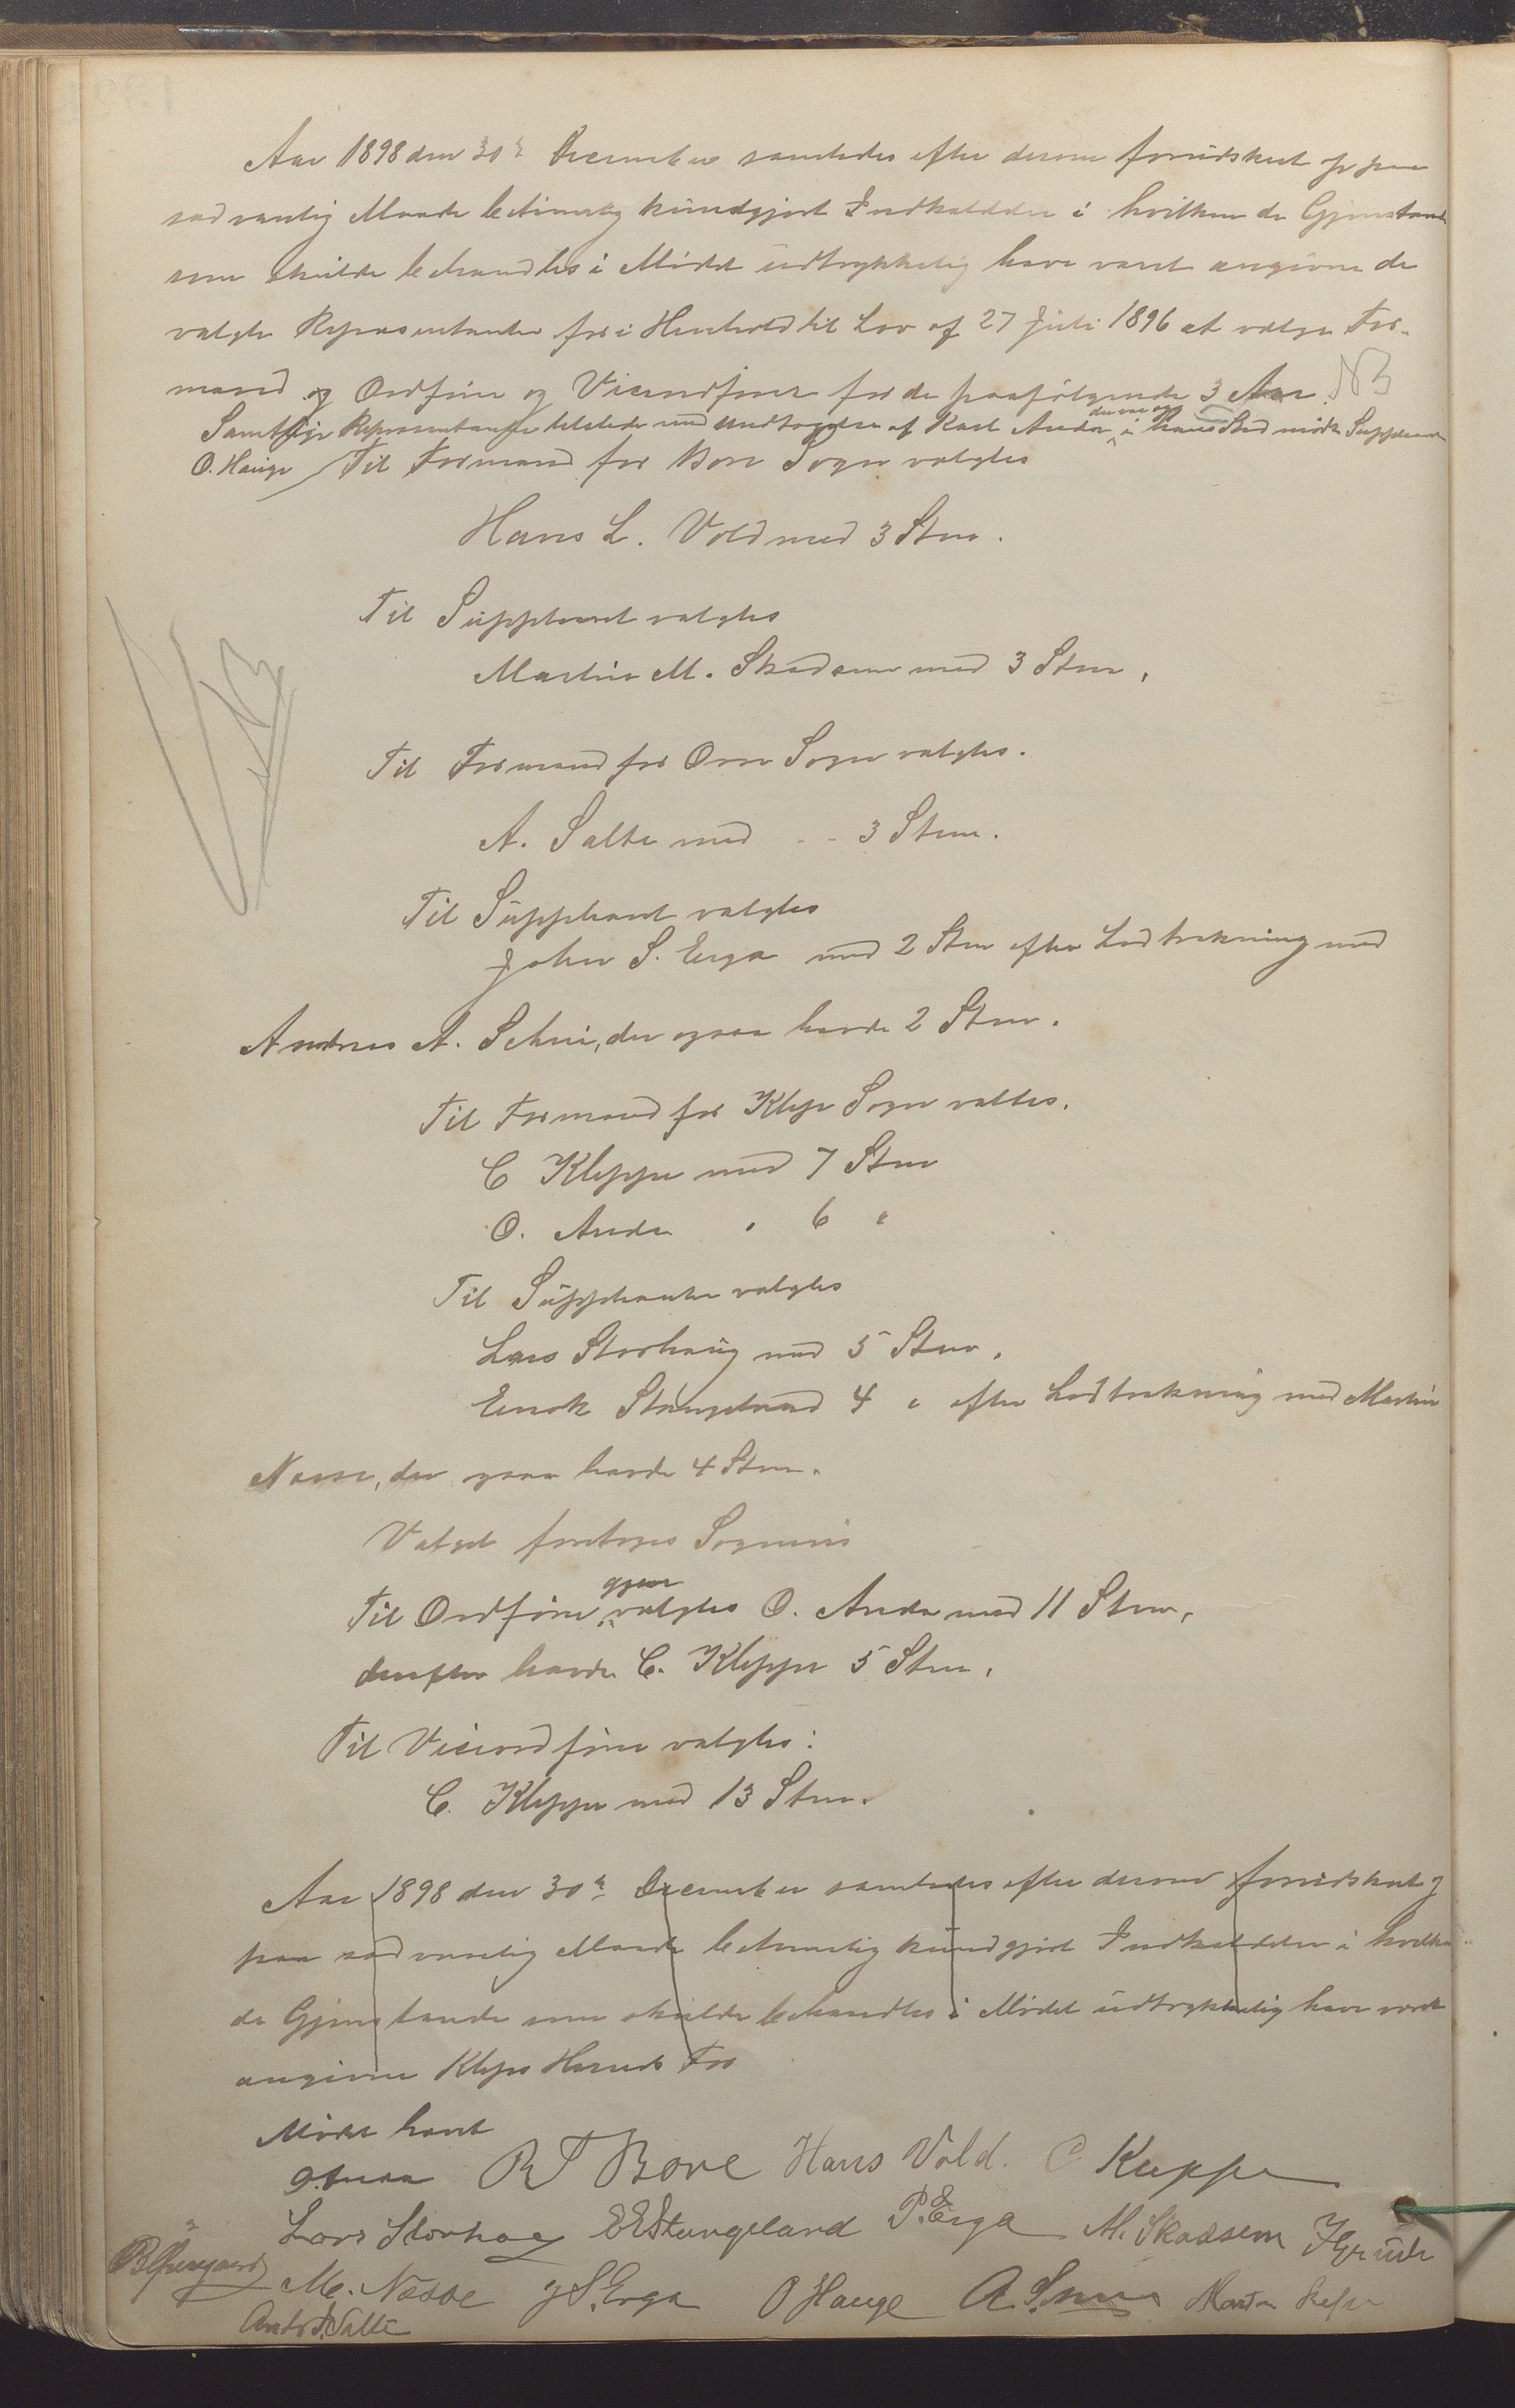 Aar 1898 den 30te December samledes efter derom forudskeet og paa
sædvanlig Maade betimelig kundgjort Indkaldelse i hvilken de Gjenstande
som skulde behandles i Mødet udtrykkelig have været angivne de
valgte Repræsentanter for i Henhold til Lov af 27 Juli 1896 at vælge For-
mænd og Ordfører og Viceordfører for de paafølgende 3 Aar. NB
Samtlige Repræsentanter tilstede med Undtagelse af Karl Anda i hans Sted mødte Suppleant
O. Hauge Til Formand for Bore Sogn valgtes
Hans L. Vold med 3 Stm.
Til Suppleant valgtes
Martin M. Skadsem med 3 Stm.
Til Formand for Orre Sogn valgtes.
A. Salte med - - 3 Stm.
Til Suppleant valgtes
John S. Erga med 2 Stm efter Lodtrekning med
Andreas A. Sele, der ogsaa havde 2 Stm.
Til Formænd for Klep Sogn valtes.
C Kleppe med 7 Stm
O. Anda " 6 "
Til Suppleanter valgtes
Lars Storhaug med 5 Stm.
Enok Stangeland 4 " efter Lodtrekning med Martin
Næsse, der ogsaa havde 4 Stm.
Valget foretoges Sognevis
Til Ordfører gjenvalgtes O. Anda med 11 Stm,
derefter havde C. Kleppe 5 Stm.
Til Viceordfører valgtes:
C. Kleppe med 13 Stm.
Aar 1898 den 30te December samledes efter derom forudskeet og
paa sædvanlig Maade betimelig kundgjort Indkaldelse i hvilken
de Gjenstande som skulde behandles i Mødet udtrykkelig have været
angivne Kleps Herreds For
Mødet hævet
O. Anda R T Bore Hans Vold. C Kleppe
Lars Storhaug E E Stangeland P. E. Erga M. Skadsem
M. Næsse J S. Erga O Hauge
Andr. Salte